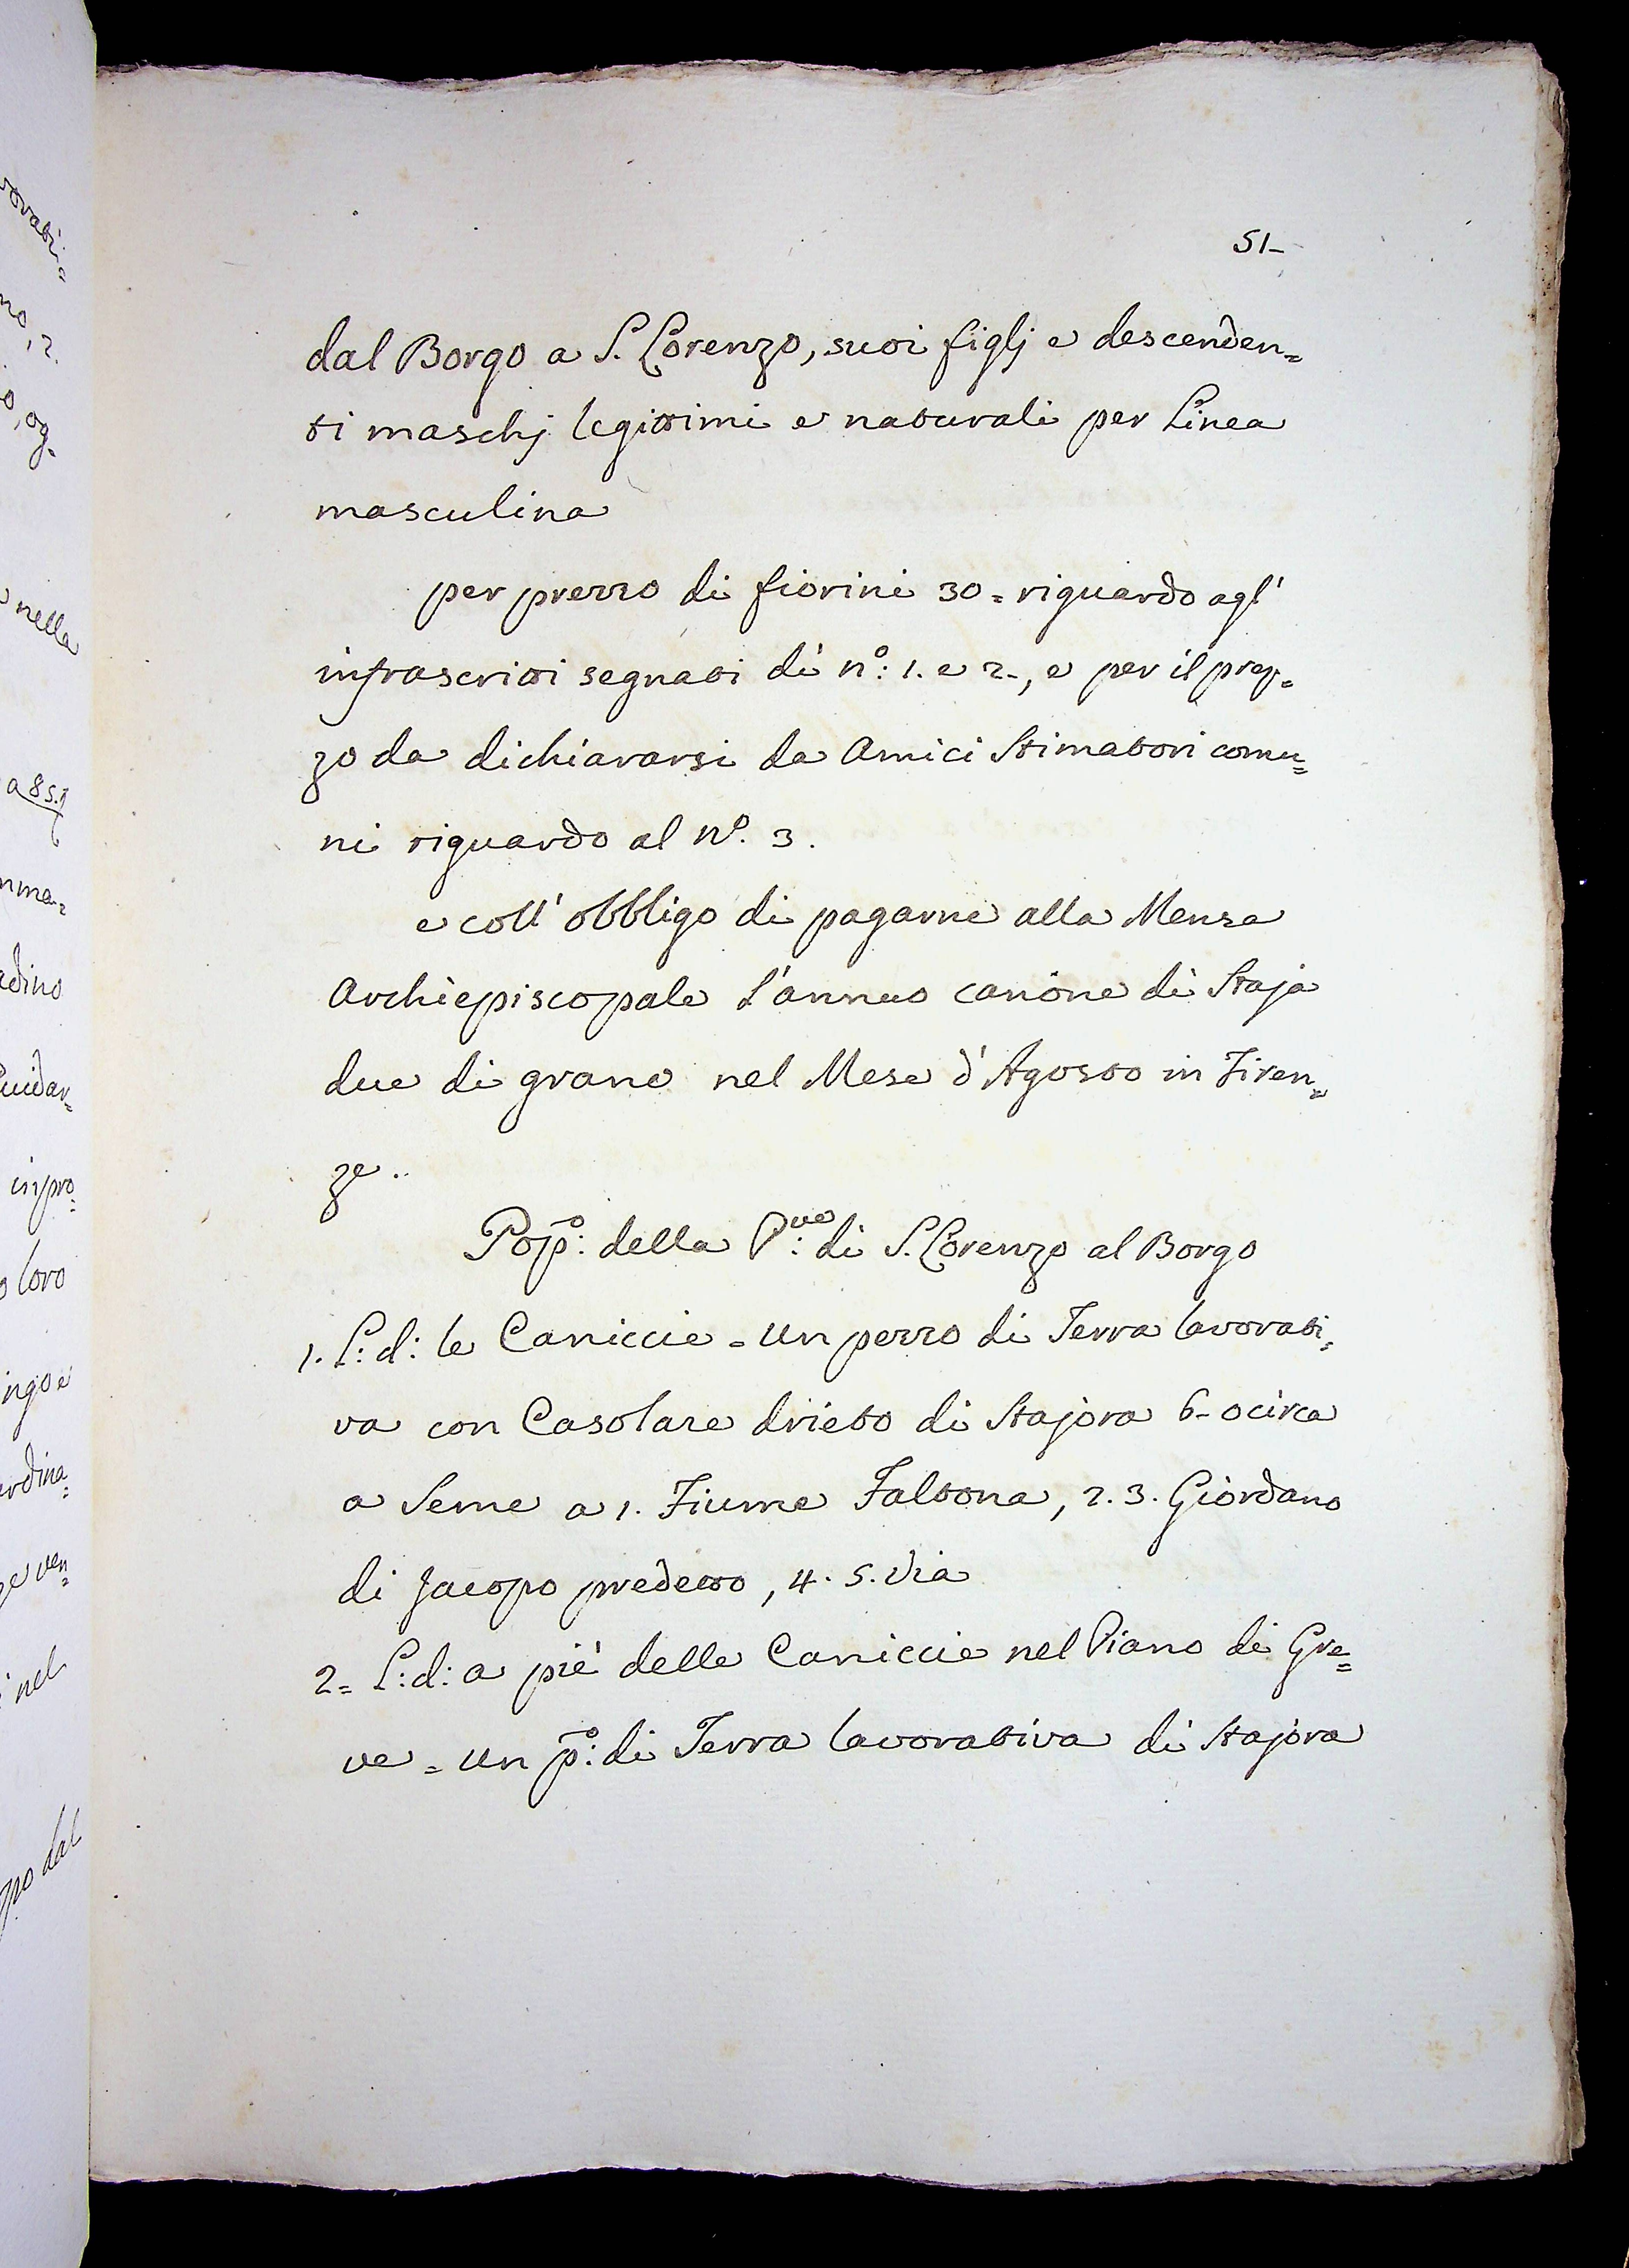 51-
dal Borgo a S. Lorenzo, suoi figlj e descenden=
ti maschj legittimi e naturali per Linea
masculina
per prezzo di fiorini 30 = riguardo agl'
infrascritti segnati di n.º: 1. e 2., e per il prez=
zo da dichiararsi da Amici Stimatori comu=
ni riguardo al Nº. 3.
e coll' obbligo di pagarne alla Mensa
Archiepiscopale l'annuo canone di Staja
due di grano nel Mese d'Agosto in Firen=
ze..
Pop:º della P:ve di S. Lorenzo al Borgo
1. L: d: le Caniccie = un pezzo di Terra lavorati=
va con Casolare drieto di Stajora 6- o circa
a Seme a 1. Fiume Faltona, 2. 3. Giordano
di Jacopo predetto, 4. 5. Via
2= L: d: a piè delle Caniccie nel Piano di Gre=
ve = un p:º di Terra lavorativa di Stajora
nella
a 85.
adino
in pro=
loro
nel
dal